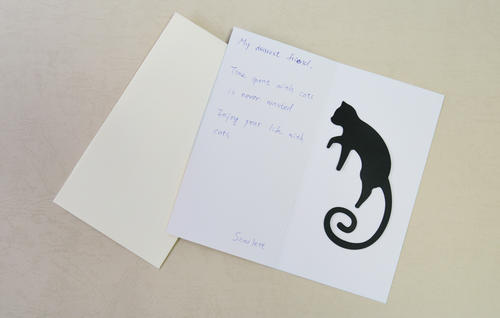 My dearest friend,
Time spent with cats
is never wasted
Enjoy your life with
cats
Scarlett